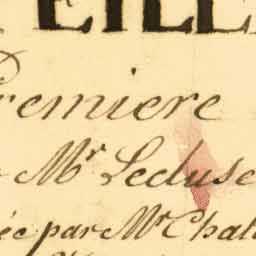 EILL
Premiere
Mr Lecluse
ée par Mr Chal